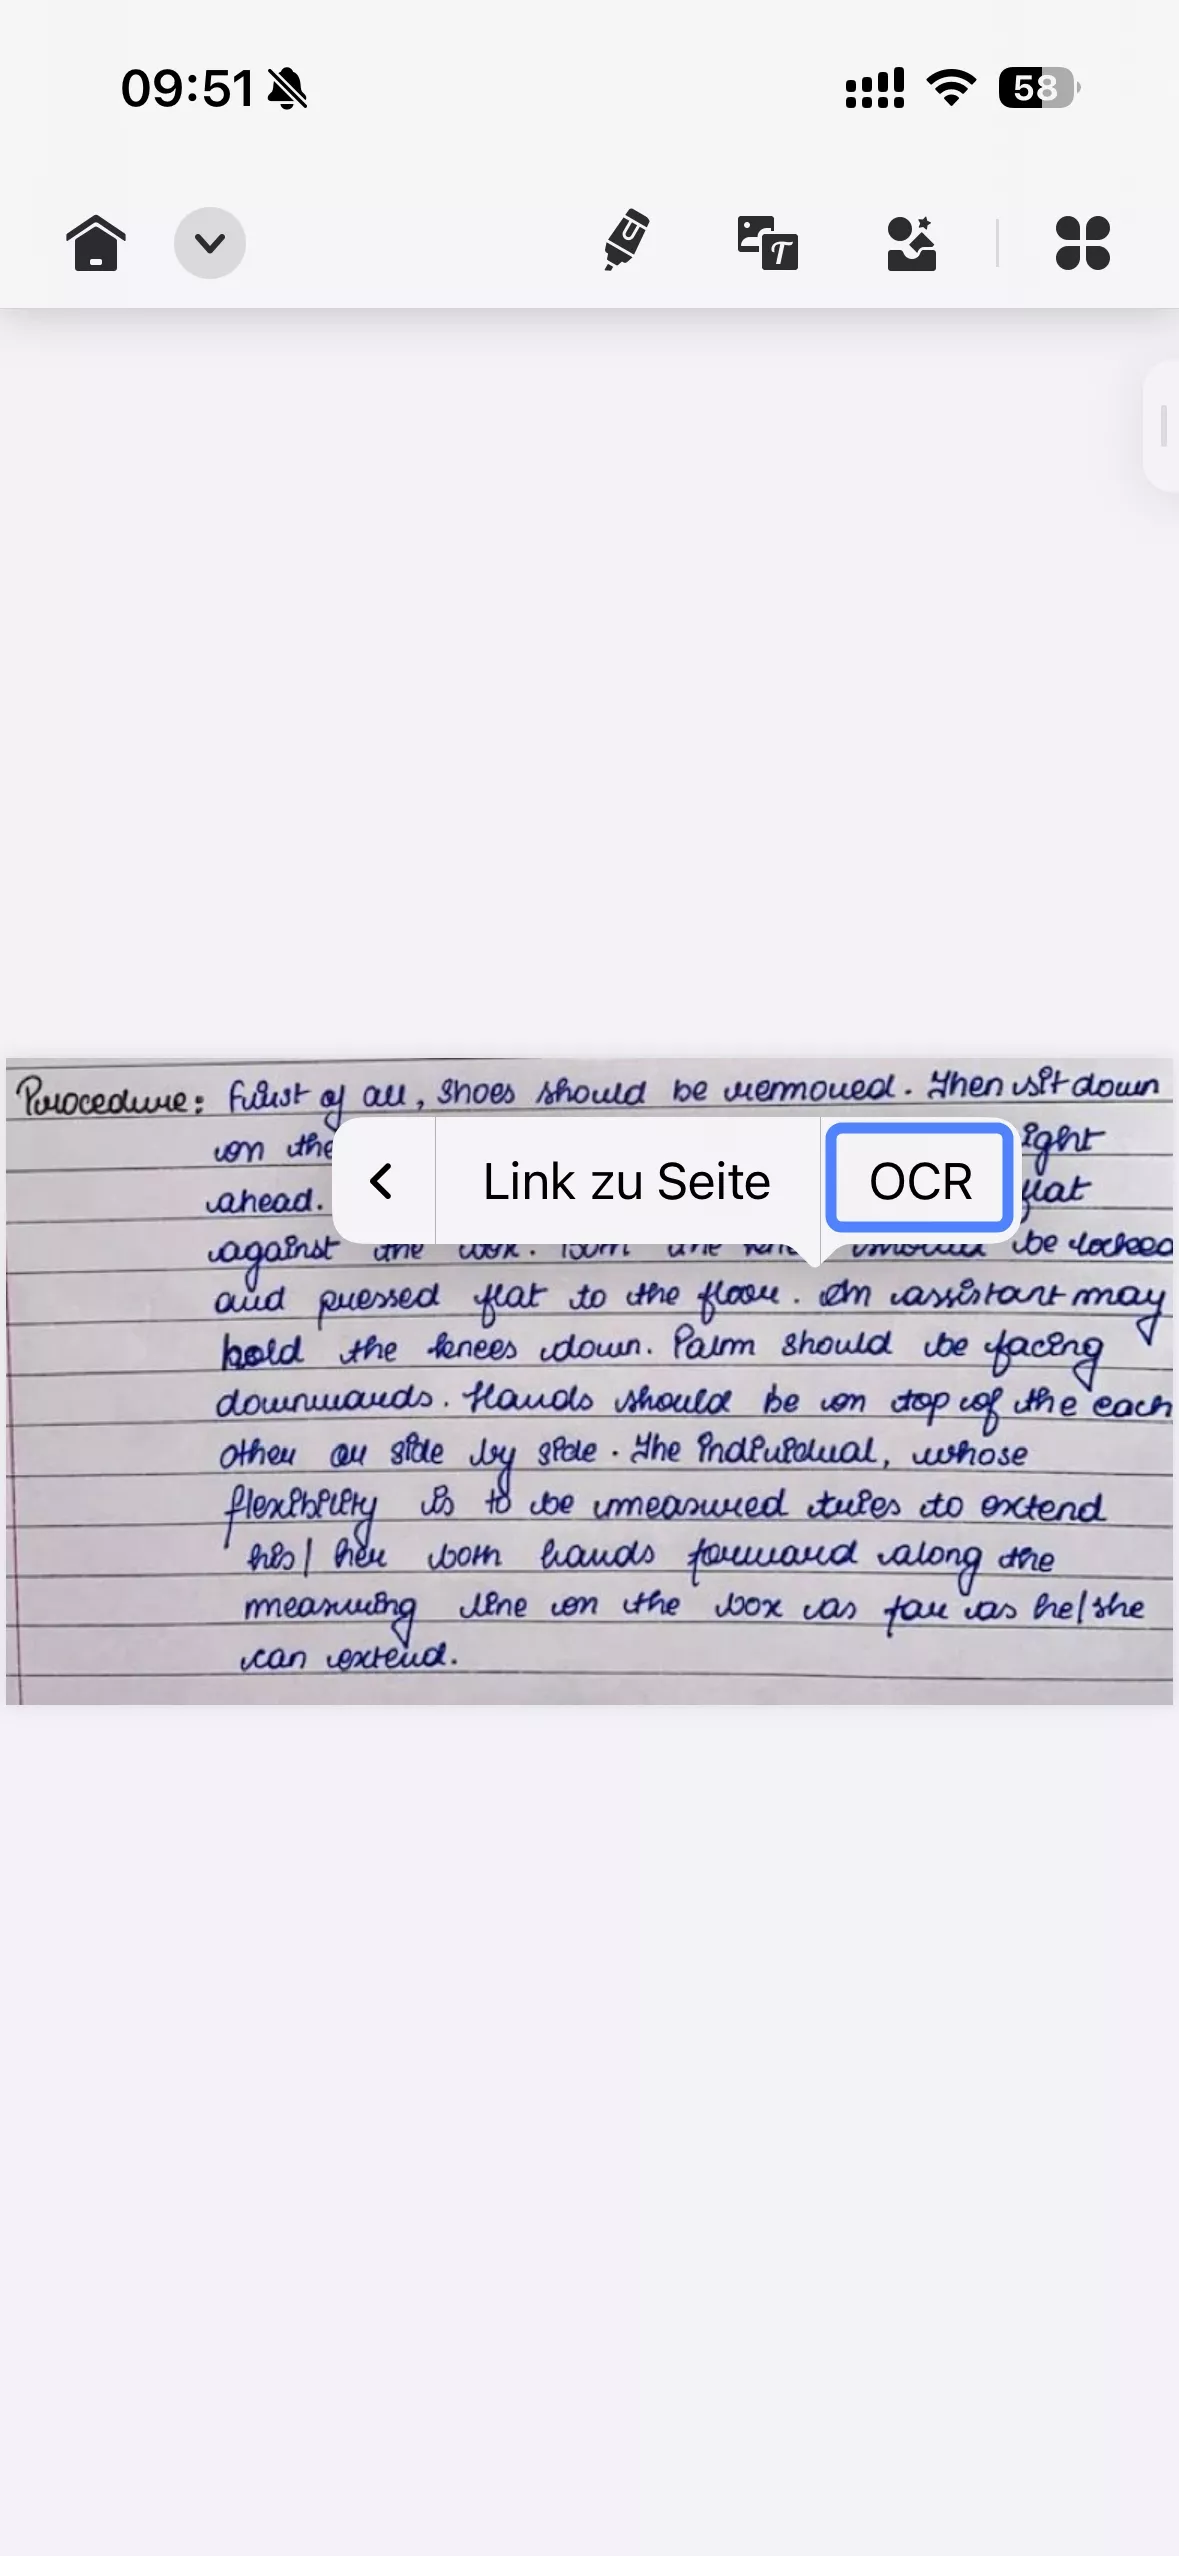 09:51
58
Procedure: First of all, Shoes should be remmoved. Then sit down
on the ight
ahead. flat
against the box. Both the knees should be locked
and pressed flat to the floor. An assistant may
hold the knees down. Palm should be facing
downwards. Hands should be on top of the each
other or side by side. The individual, whose
flexibility is to be measured tries to extend
his/her both hands forward along the
measuring line on the box as far as he/she
can extend.
Link zu Seite
OCR